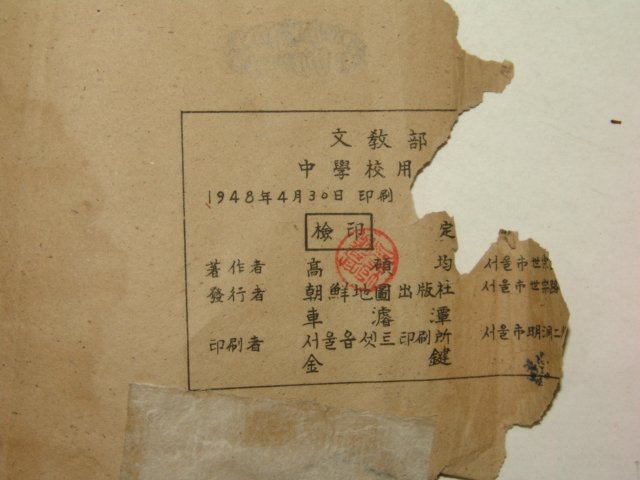 文敎部
中學校用
1948年4月30日 印刷
檢印 定
著作者 高 禎 均 서울市世宗
發行者 朝鮮地圖出版社 서울市世宗
車 濬 潭
印刷者 서울옵셋트印刷所 서울市明洞二
金 鍵